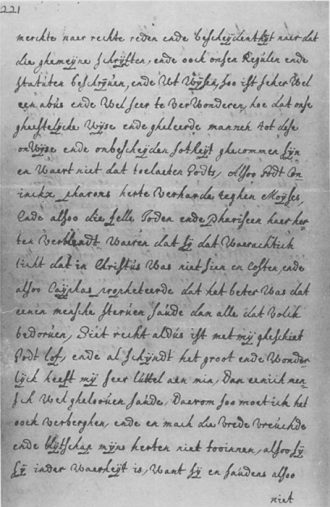 221
merckt naer rechte reden ende bescheijdentheijt naer dat
die ghemeijne schrijften, ende oock onsen Regulen ende
statuten beschrijven, ende Wt Wijsen, soo ist seker Wel
een abus ende Wel seer te verwonderen, hoe dat onse
gheestelijcke Wijse ende gheleerde mannen tot dese
onWijse ende onbescheijden sotheijt ghecommen sijn
en Waert niet dat toelaeten Godts, Alsoo Godt
pharons herte verharde teghen Moijses,
Ende alsoo die felle Joden ende Phariseen haer her
ten verblendt Waeren dat sij dat Waerachtich
licht dat in Christus Was niet sien en Costen ende
alsoo Caijphas propheteerde dat het beter Was dat
eenen mensche sterven soude dan alle dat volck
bedorven, Siet recht aldus ist met mij gheschiet
Godt lof, ende al schijndt het groot ende Wonder
lijck heeft mij seer luttel aen mia, Dan en ich men
sch Wel ghelooven soude, Daerom soo moet ich het
oock verberghen, ende en mach die vrede vreuchde
ende blijtschap mijns herten niet toonen, alsoo sij
sij inder Waerheijt is, Want sij en soudens alsoo
niet